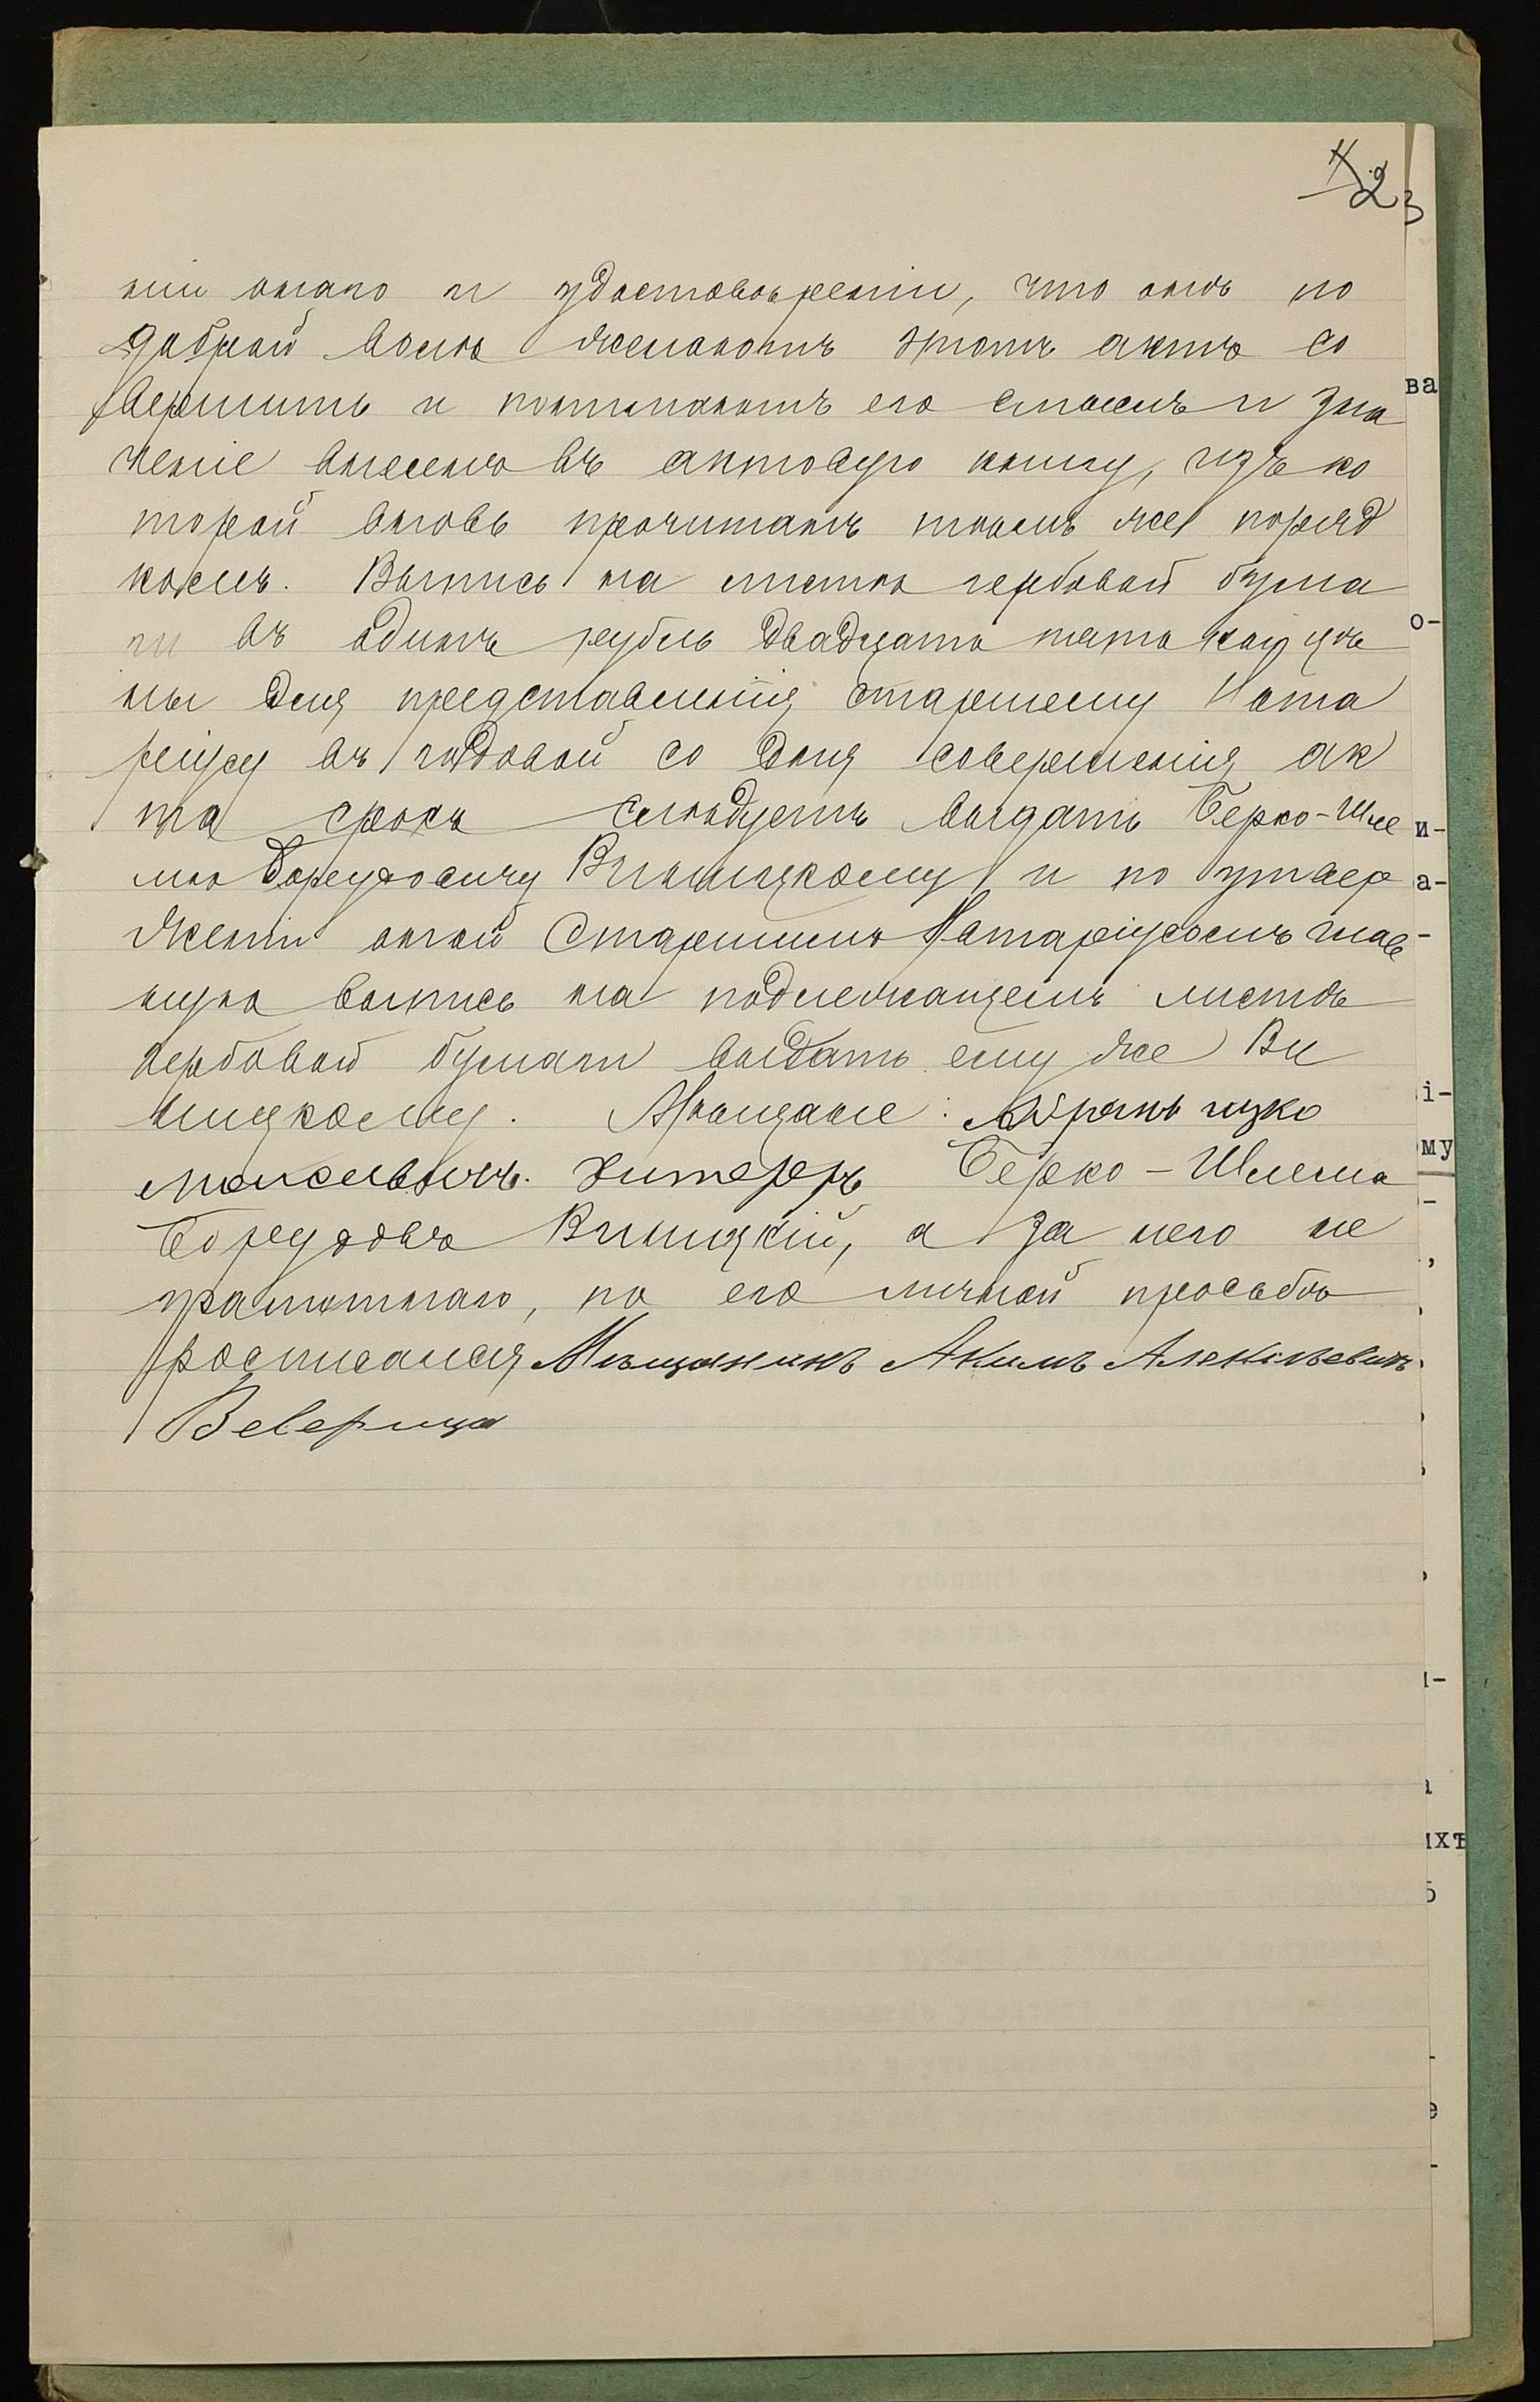 23
ніи онаго и удостовѣреніи, что онѣ по
доброй волѣ желаютъ этотъ актъ со
вершить и понимаютъ его смыслъ и зна
ченіе внесенъ въ актовую книгу, изъ ко
торой вновь прочитанъ тѣмъ же поряд
комъ. Выпись на листѣ гербовой бума
ги въ одинъ рубль двадцать пять коп. цѣ
ны для представленія старшему Нота
ріусу въ годовой со дня совершенія ак
та срокъ слѣдуетъ выдать Берко-Шле
мѣ Боруховичу Винницкому и по утвер
жденіи оной Старшимъ Нотаріусомъ глав
ную выпись на подлежащемъ листѣ
гербовой бумаги выдать ему же Ви
ницкому. Мѣщане: Абрамъ ицко
Мошковичъ Берко-Шлема
Боруховъ Виницкій, а за него не
грамотнаго, по его личной просьбѣ
росписался Мѣщанинъ Акимъ Алексѣевичъ
Веверица
ва
о-
и-
а-
-
і-
ому
-
,
и-
а
ихъ
б
-
е
-